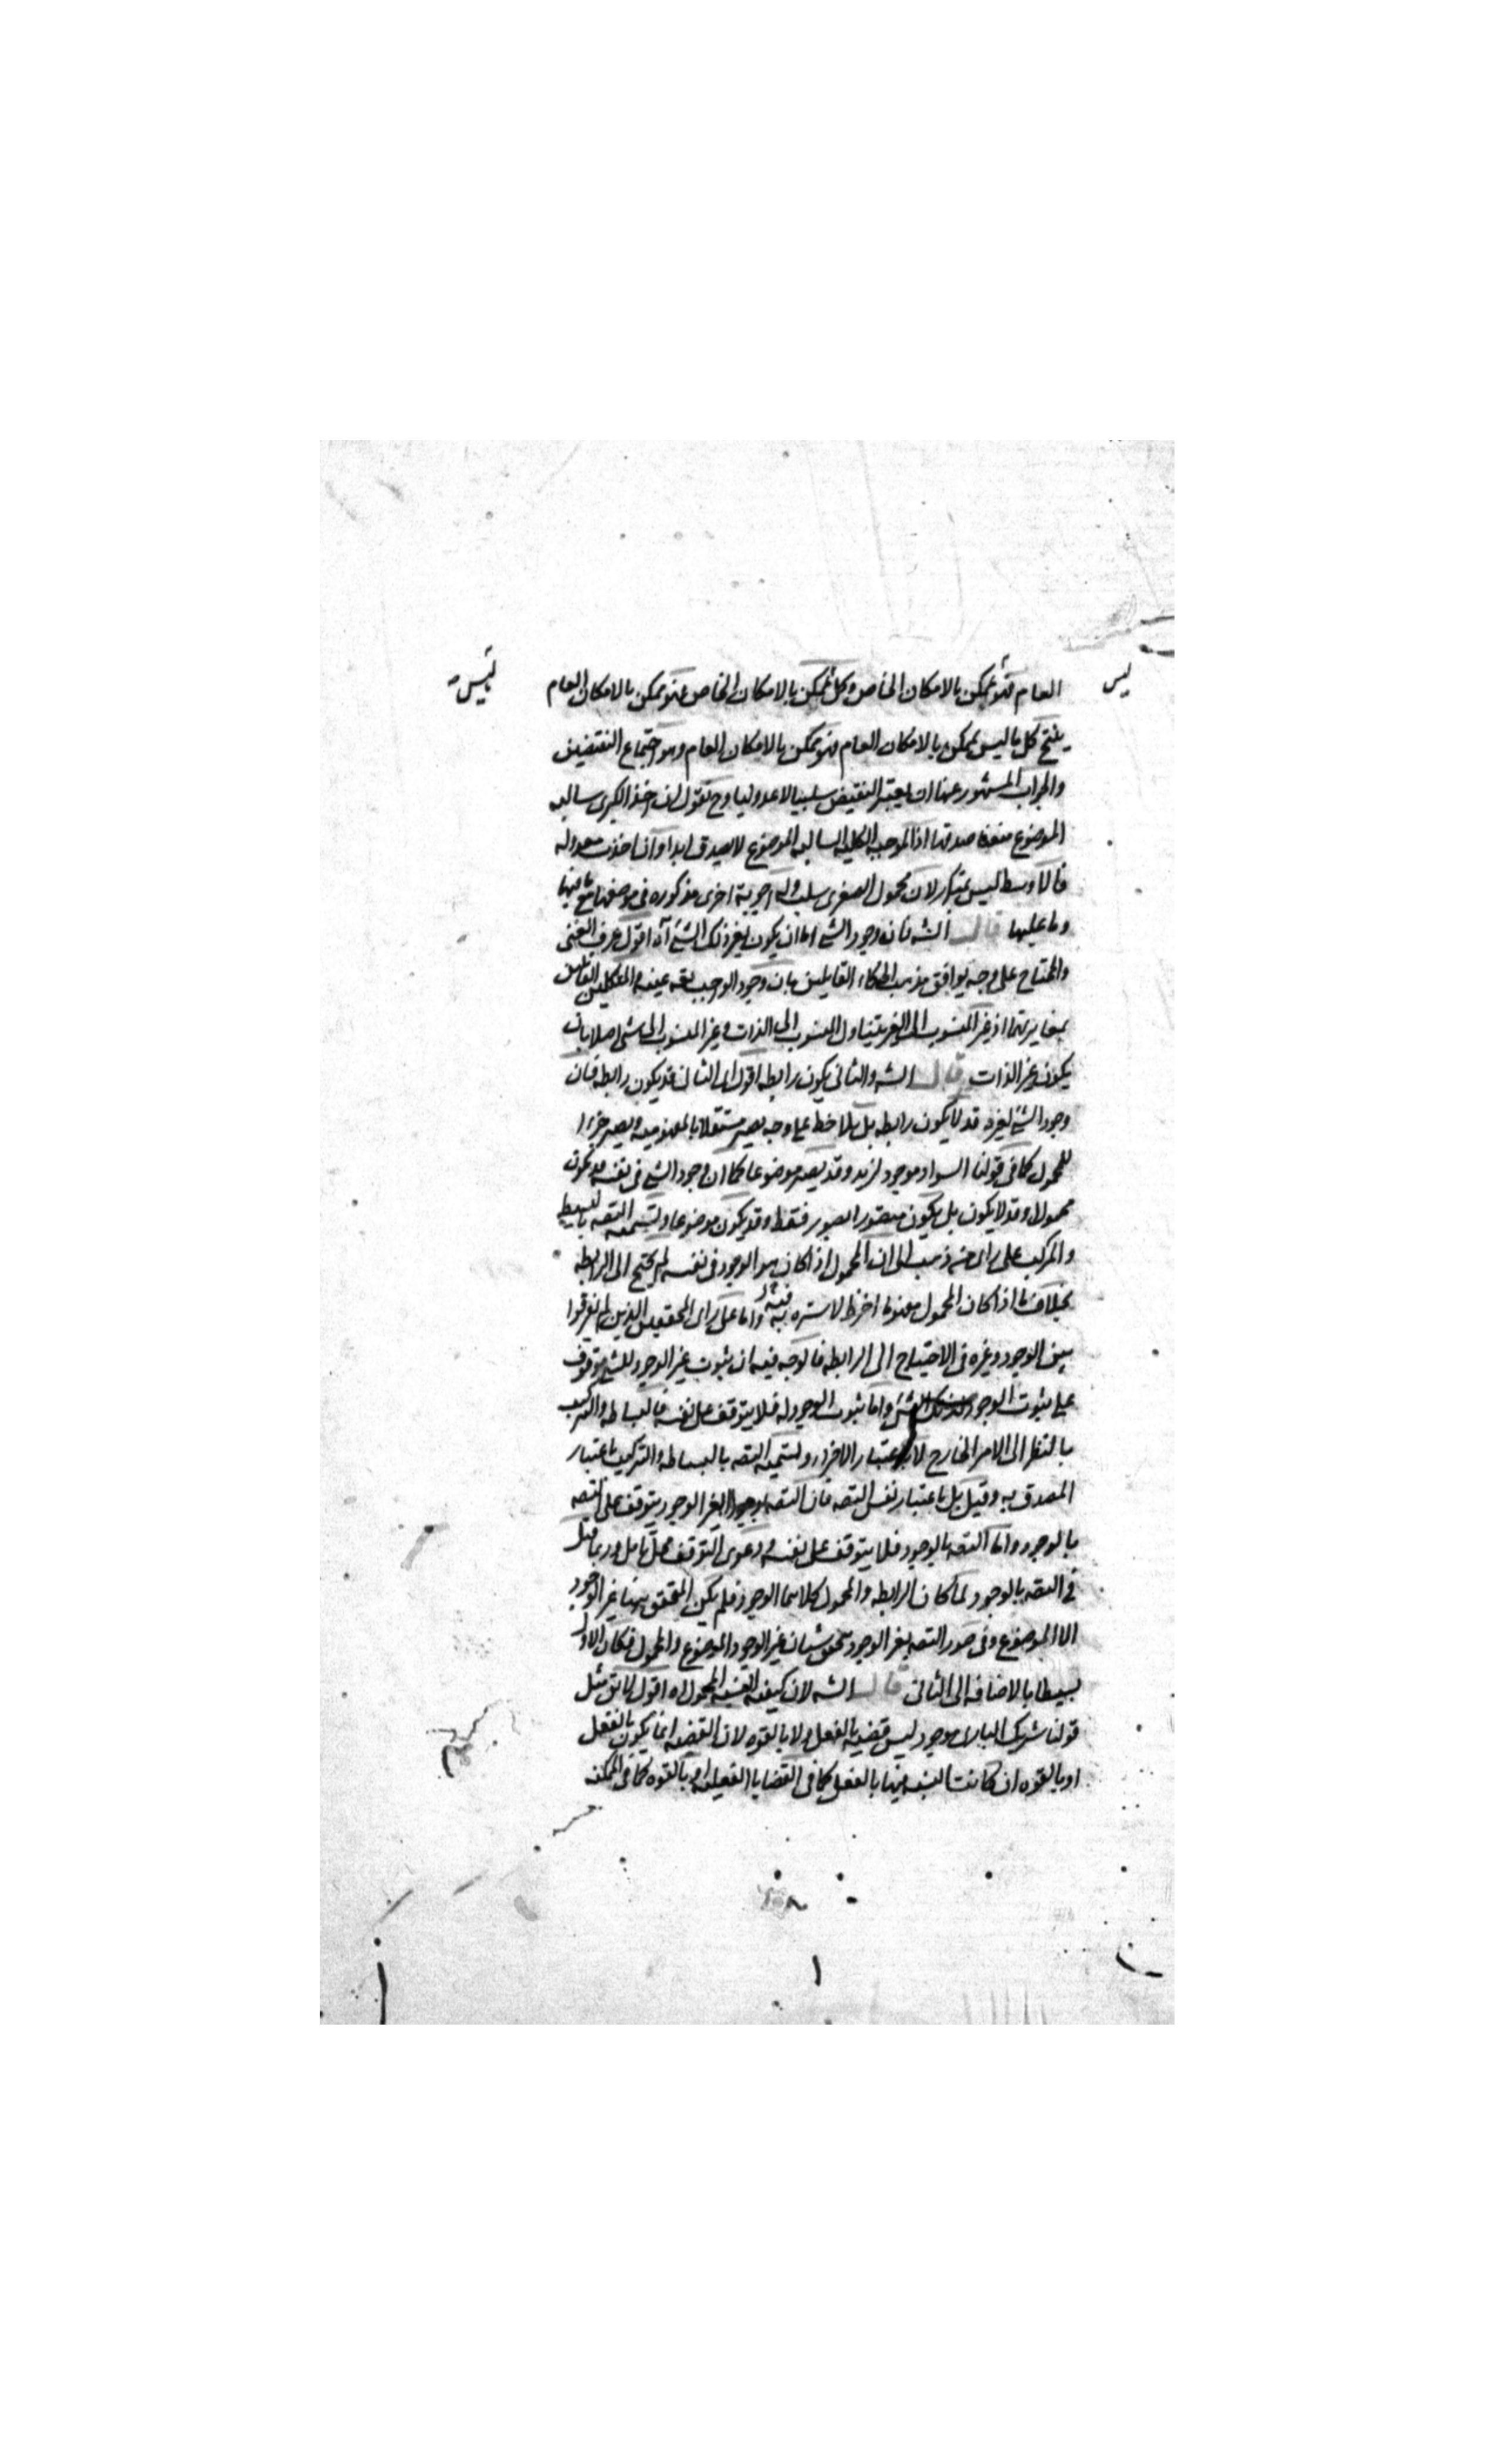 العام فهو ممكن بالامكان الخاص وكل ممكن بالامكان الخاص فهو ممكن بالامكان العام
ليس
ليس
ينتج كل ما ليس بممكن بالامكان العام فهو ممكن بالامكان العام وهو اجتماع النقيضين
والجواب المشهور عنها ان يعتبر النقيض سلبيا لا عدوليا وح نقول ان اخذ الكبرى سالبه
الموضوع منعنا صدقها اذ الموجبه الكليه السالبه الموضوع لا يصدق ابدا وان اخذت معدوله
فالاوسط ليس بمتكرر لان محمول الصغرى سلب وله اجوبة اخرى مذكوره فى موضعها مع ما فيها
وما عليها قال الشه فان وجود الشئ اما ان يكون لغير ذلك الشئ آه اقول عرف الغنى
والمحتاج على وجه يوافق مذهب الحكماء القايلين بان وجود الواجب تعه عينه والمتكلمين القايلين
بمغايرتهما اذ غير المنسوب الى الغير يتناول المنسوب الى الذات وغير المنسوب الى شئ اصلا بان
يكون غير الذات قال الشه والثانى يكون رابطه اقول اى الثانى قد يكون رابطه فان
وجود الشئ لغيره قد لا يكون رابطه بل يلاحظ على وجه يصير مستقلا بالمفهوميه ويصير جزءا
للمحمول كما فى قولنا السواد موجود لزيد وقد يصير موضوعا كما ان وجود الشئ فى نفسه قد يكون
محمولا وقد لا يكون بل يكون متصورا بصور فقط وقد يكون موضوعا وتسميه التصه بالبسيط
والمركب على راى من ذهب الى ان المحمول اذا كان هو الوجود فى نفسه لم يحتج الى الرابطه
بخلاف ما اذا كان المحمول مفهوما اخر ظ لا ستره فيه واما على راى المحققين الذين لم يفرقوا
بين الوجود وغيره فى الاحتياج الى الرابطه فالوجه فيه ان ثبوت غير الوجود للشئ متوقف
على ثبوت الوجود لذلك الشئ واما ثبوت الوجود له فلا يتوقف على نفسه فالبساطه والتركيب
بالنظر الى الامر الخارج لا باعتبار الاجزاء وتسميه التصه بالبساطه والتركيب باعتبار
المصدق به وقيل بل باعتبار نفس التصه فان التصه بوجود الغير الوجود يتوقف على التصه
بالوجود واما التصه بالوجود فلا يتوقف على نفسه ودعوى التوقف محل تامل وربما قيل
فى التصه بالوجود لما كان الرابطه والمحمول كلاهما الوجود فلم يكن المتحقق فيها غير الوجود
الا الموضوع وفى صور التصه بغير الوجود تحقق شيئان غير الوجود الموضوع والمحمول فكان الاول
بسيطا بالاضافه الى الثانى قال الشه لان كيفيه النسبه المحمول اه اقول لا يق مثل
قولنا شريك البارى موجود ليس قضيه بالفعل ولا بالقوه لان القضيه انما يكون بالفعل
او بالقوه ان كانت النسبه فيها بالفعل كما فى القضايا الفعليه او بالقوه كما فى الممكنه